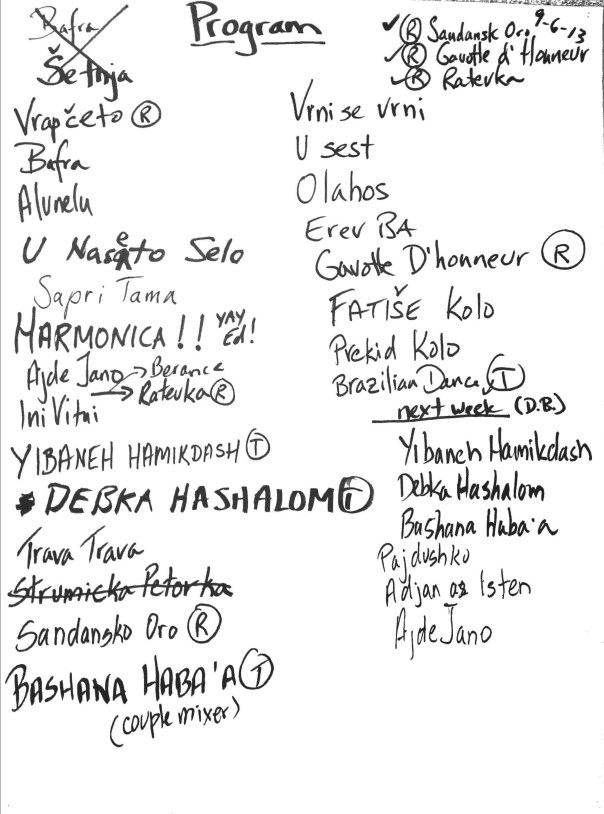 Program
9-6-13
✓ Ⓡ Sandansk Oro
✓ Ⓡ Gavotte d'Honneur
✓ Ⓡ Ratevka
Bafra
Šetnja
Vrapčeto Ⓡ
Bafra
Alunelu
U Našeto Selo
Sapri Tama
HARMONICA!! YAY Ed!
Ajde Jano → Berance
→ Ratevka Ⓡ
Ini Vitui
YIBANEH HAMIKDASH Ⓣ
DEBKA HASHALOM Ⓣ
Trava Trava
Strumicka Petorka
Sandansko Oro Ⓡ
BASHANA HABA'A Ⓣ
(couple mixer)
Vrni se vrni
U sest
Olahos
Erev BA
Gavotte D'honneur Ⓡ
FATIŠE Kolo
Prekid Kolo
Brazilian Dance Ⓣ
next week (D.B.)
Yibaneh Hamikdash
Debka Hashalom
Bashana Haba'a
Pajdushko
Adjan az Isten
Ajde Jano